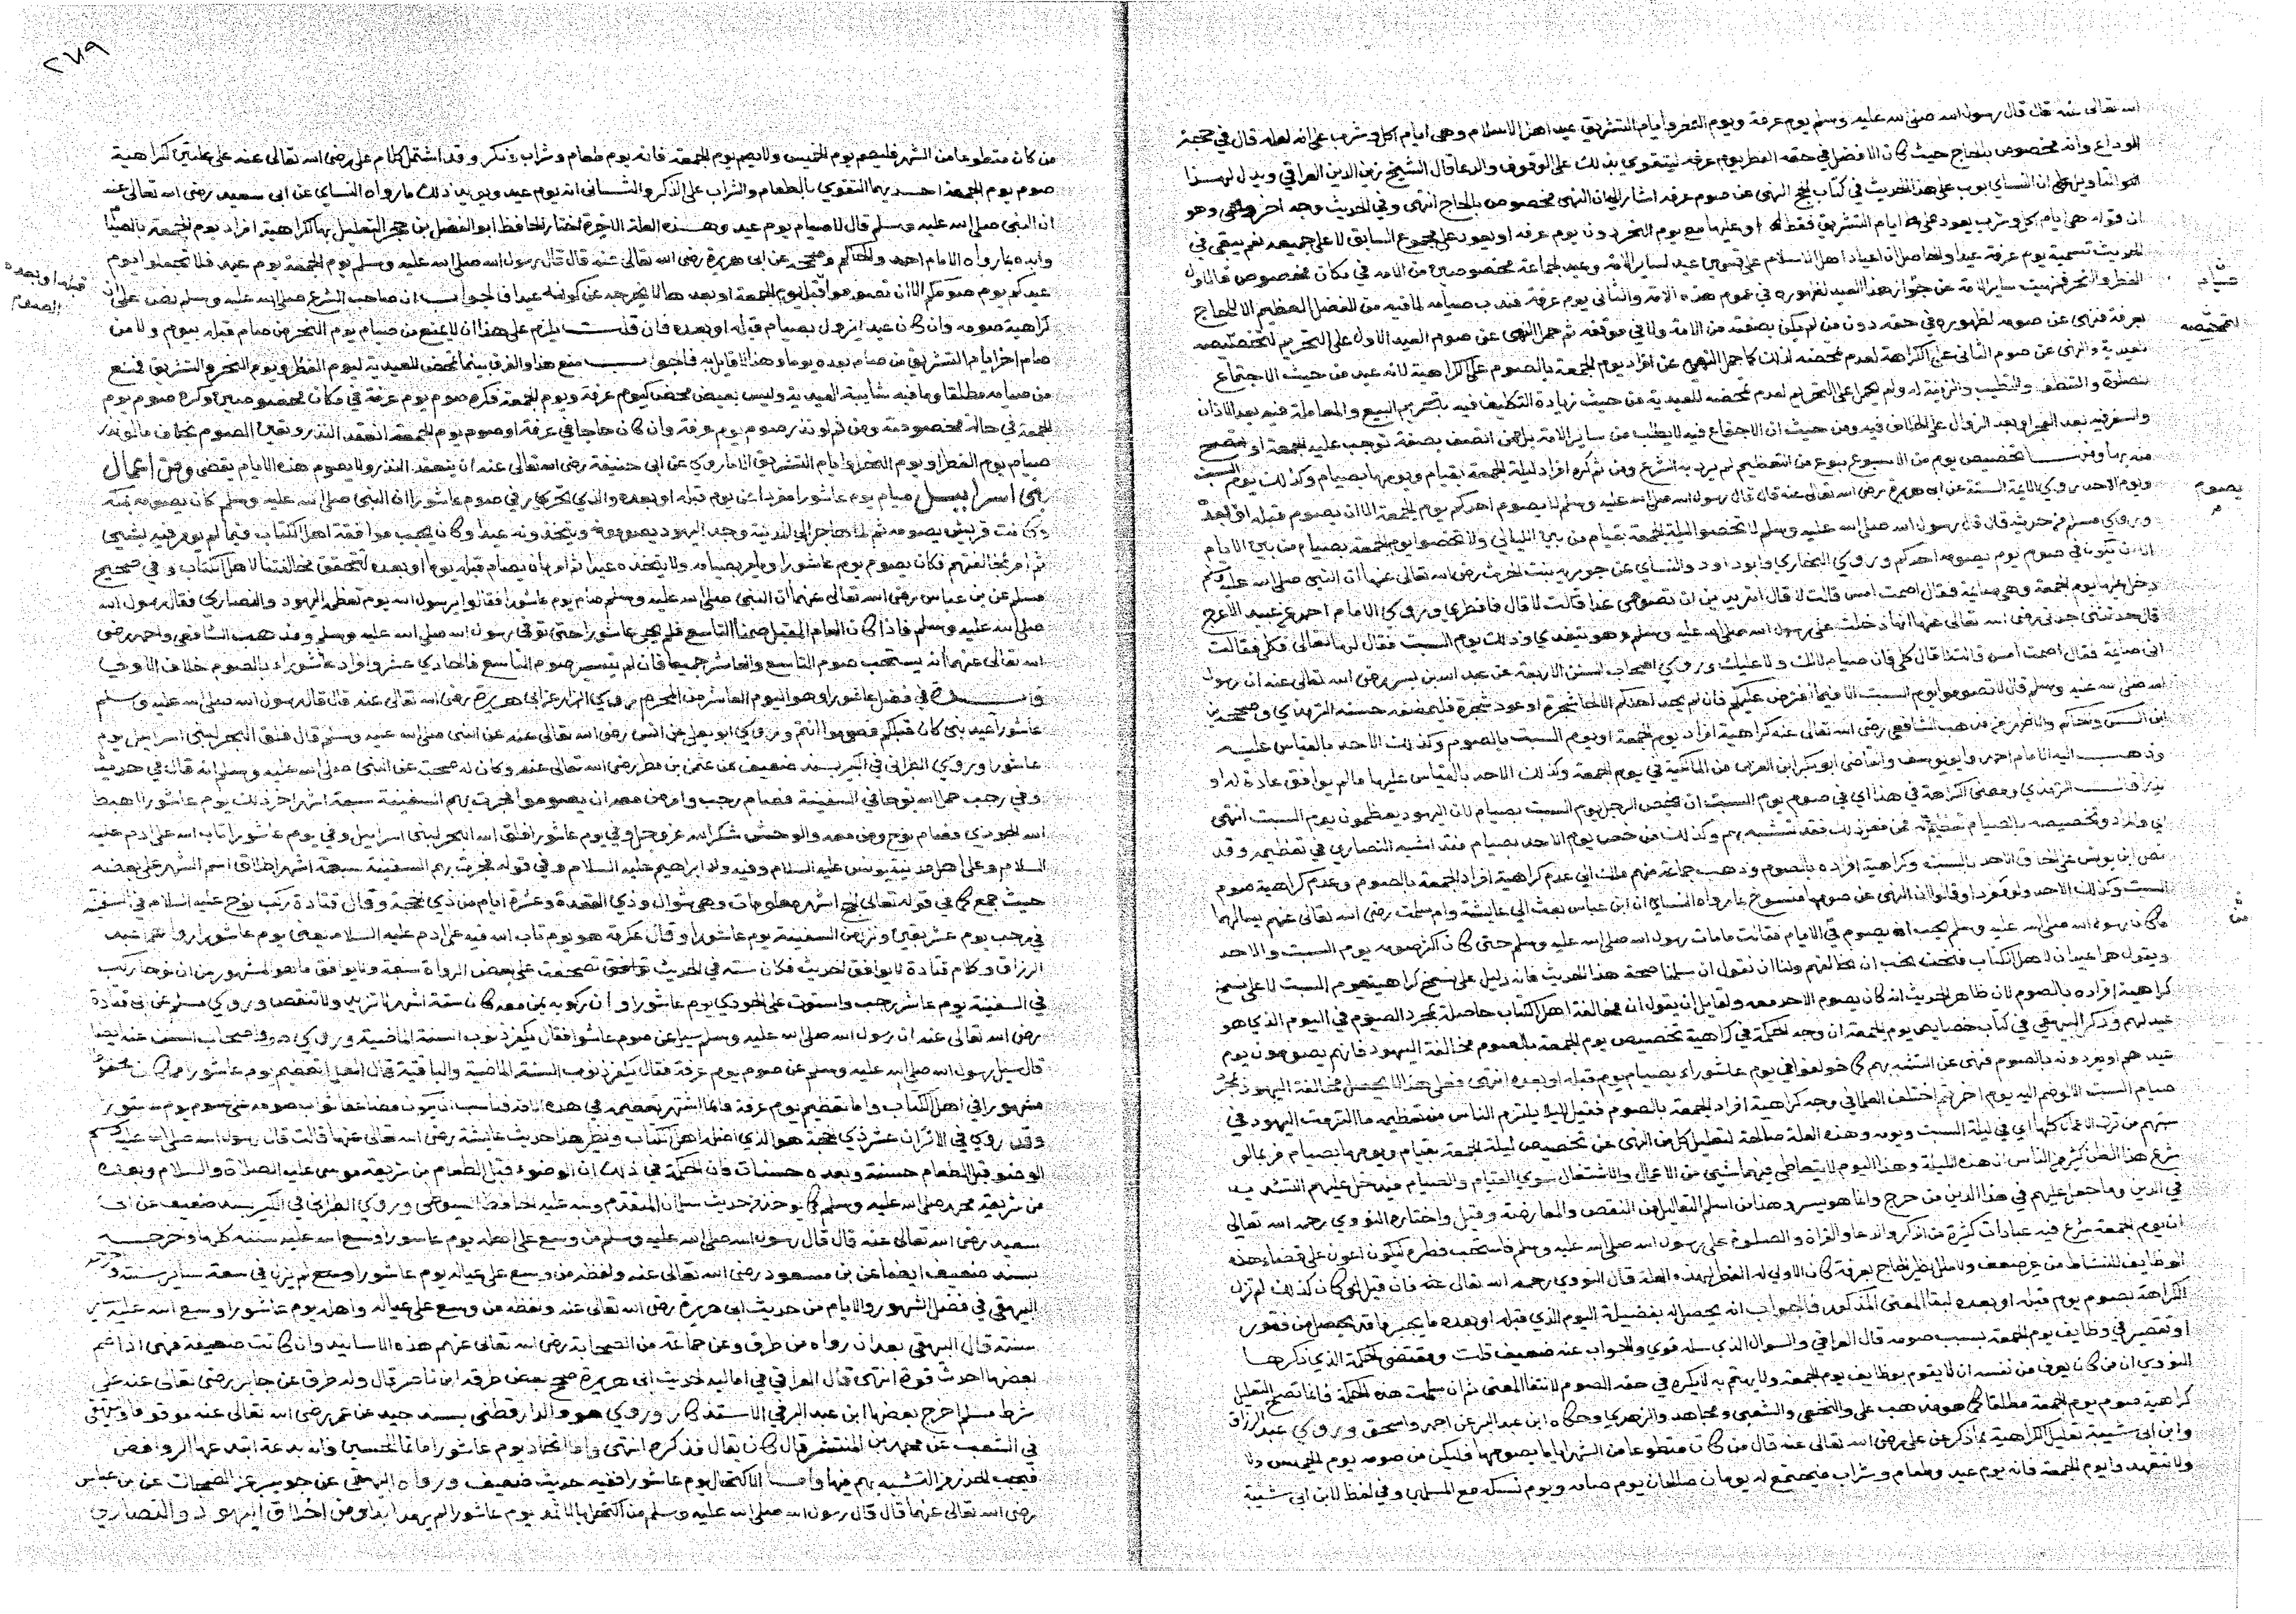 الله تعالى عنه قال قال رسول الله صلى الله عليه وسلم يوم عرفة ويوم النحر وايام التشريق عيد اهل الاسلام وهي ايام اكل وشرب على انه لعله قال في حجة
الوداع وانه مخصوص بالحاج حيث كان الافضل في حقه الفطر يوم عرفه ليتقوي بذلك على الوقوف والدعا قال الشيخ زين الدين العراقي ويدل لهذا
ان النساي بوب على هذا الحديث في كتاب الحج النهى عن صوم عرفه اشار الى ان النهى مخصوص بالحاج انتهى وفي الحديث وجه اخر وهو
ان قوله هي ايام اكل وشرب يعود على ايام التشريق فقط او عليها مع يوم النحر دون يوم عرفه او يعود على مجموع السابق لا على جميعه نعم يبقي في
الحديث تسمية يوم عرفة عيدا والحاصل ان اعياد اهل الاسلام على قسمين عيد لساير الامة وعيد لجماعة مخصوصين من الامة في مكان مخصوص فالاول
الفطر والنحر فنهيت ساير الامة عن جواز هذا العيد لظهوره في عموم هذه الامة والثاني يوم عرفة فندب صيامه لما فيه من الفضل العظيم الا للحاج
صيام
بعرفة فنهى عن صومه لظهوره في حقه دون من لم يكن بصفته من الامة ولا في موقفه ثم حمل النهى عن صوم العيد الاول على التحريم لتخصيصه
لتمحضه
للعيدية والنهى عن صوم الثاني على الكراهة لعدم تمحضه لذلك كما حمل النهى عن افراد يوم الجمعة بالصوم على الكراهية لانه عيد من حيث الاجتماع
للصلوة والتنظف والتطيب والزينة له ولم يحمل على التحريم لعدم تمحضه للعيدية من حيث زيادة التكليف فيه بتحريم البيع والمعاملة فيه بعد الاذان
والسفر فيه بعد الفجر او بعد الزوال على الخلاف فيه ومن حيث ان الاجتماع فيه لا يطلب من ساير الامة بل ممن اتصف بصفة توجب عليه الجمعة او تصح
منه تخصيص يوم من الاسبوع بنوع من التعظيم لم يرد به الشرع ومن ثم كره افراد ليلة الجمعة بقيام ويومها بصيام وكذلك يوم السبت
ويوم الاحد روي الائمة الستة عن ابي هريرة رضى الله تعالى عنه قال قال رسول الله صلى الله عليه وسلم لا يصوم احدكم يوم الجمعة الا ان يصوم قبله او بعده
يصوم
وروي مسلم من حديثه قال قال رسول الله صلى الله عليه وسلم لا تخصوا ليلة الجمعة بقيام من بين الليالي ولا تخصوا يوم الجمعة بصيام من بين الايام
الا ان يكون في صوم يوم يصومه احدكم وروي البخاري وابو داود والنساي عن جويرية بنت الحرث رضى الله تعالى عنها ان النبي صلى الله عليه وسلم
دخل عليها يوم الجمعة وهي صائمة فقال اصمت امس قالت لا قال اتريدين ان تصومي غدا قالت لا قال فافطري وروي الامام احمد عن عبيد الاعرج
قال حدثتني جدتي رضى الله تعالى عنها انها دخلت على رسول الله صلى الله عليه وسلم وهو يتغدي وذلك يوم السبت فقال لها تعالى فكلي فقالت
اني صائمة فقال اصمت امس قالت لا قال كلي فان صيام لا لك ولا عليك وروي اصحاب السنن الاربعة عن عبد الله بن بسر رضى الله تعالى عنه ان رسول
الله صلى الله عليه وسلم قال لا تصوموا يوم السبت الا فيما افترض عليكم فان لم يجد احدكم الا لحا شجرة او عود شجرة فليمضغه حسنه الترمذي وصححه بن
ابن السكن والحاكم والظاهر من مذهب الشافعي رضى الله تعالى عنه كراهية افراد يوم الجمعة او يوم السبت بالصوم وكذلك الاحد بالقياس عليه
وذهب اليه الامام احمد وابو يوسف والقاضى ابو بكر ابن العربي من المالكية في يوم الجمعة وكذلك الاحد بالقياس عليها مالم يوافق عادة له او
نذرا قال الترمذي ومعنى الكراهة في هذا اي في صوم يوم السبت ان يختص الرجل يوم السبت بصيام لان اليهود يعظمون يوم السبت انتهى
اي وافراده وتخصيصه بالصيام تعظيم له فمن فعل ذلك فقد تشبه بهم وكذلك من خص يوم الاحد بصيام فقد اشبه النصاري في تعظيمه وقد
نص ابن يونس على الحاق الاحد بالسبت وكراهية افراده بالصوم وذهب جماعة منهم مالك الى عدم كراهية افراد الجمعة بالصوم وعدم كراهية صوم
السبت وكذلك الاحد ولو مفردا وقالوا ان النهى عن صومها منسوخ بما رواه النساي ان ابن عباس بعث الي عايشة وام سلمة رضى الله تعالى عنهم يسالهما
ما كان رسول الله صلى الله عليه وسلم يحب ان يصوم من الايام فقالت ما مات رسول الله صلى الله عليه وسلم حتى كان اكثر صومه يوم السبت والاحد
ويقول هما عيدان لاهل الكتاب فنحن نحب ان نخالفهم ولنا ان نقول ان سلمنا صحة هذا الحديث فانه دليل على نسخ كراهية صوم السبت لا على نسخ
كراهية افراده بالصوم لان ظاهر الحديث انه كان يصوم الاحد معه ولقايل ان يقول ان مخالفة اهل الكتاب حاصلة بمجرد الصوم في اليوم الذي هو
عيد لهم وذكر البيهقي في كتاب خصايص يوم الجمعة ان وجه الحكمة في كراهية تخصيص يوم الجمعة بالصوم مخالفة اليهود فانهم يصومون يوم
عيدهم او يفردونه بالصوم فنهى عن التشبه بهم كما خولفوا في يوم عاشوراء بصيام يوم قبله او بعده انتهى فعلى هذا لا يحصل مخالفة اليهود بمجرد
صيام السبت الا بضم اليه يوم اخر ثم اختلف العلما في وجه كراهية افراد الجمعة بالصوم فقيل ليلا يلتزم الناس من تعظيمه ما التزمت اليهود في
سبتهم من ترك الاعمال كلها اي في ليلة السبت ويومه وهذه العلة صالحة لتعليل كل من النهى عن تخصيص ليلة الجمعة بقيام ويومها بصيام فربما لو
شرع هذا لظن كثير من الناس ان هذه الليلة وهذا اليوم لا يتعاطى فيهما شىء من الاعمال والاشتغال سوي القيام والصيام فيدخل عليهم التشديد
في الدين وما جعل عليهم في هذا الدين من حرج وانما هو يسر وهذا من اسلم التعاليل من النقص والمعارضة وقيل واختاره النووي رحمه الله تعالى
ان يوم الجمعة شرع فيه عبادات كثيرة من الذكر والدعا والقراة والصلوة على رسول الله صلى الله عليه وسلم فاستحب فطره ليكون اعون على قضاء هذه
الوظايف للنشاط من غير ضعف ولا ملل نظير الحاج بعرفة كان الاولي له الفطر لهذه العلة قال النووي رحمه الله تعالى عنه فان قيل لو كان كذلك لم تزل
الكراهة بصوم يوم قبله او بعده لبقا المعنى المذكور فالجواب انه يحصل له بفضيلة اليوم الذي قبله او بعده ما يجبر ما قد يحصل من فتور
او تقصير في وظايف يوم الجمعة بسبب صومه قال العراقي والسوال الذي سله قوي والجواب عنه ضعيف قلت ومقتضى الحكمة الذي ذكرها
النووي ان من كان يعرف من نفسه ان لا يقوم بوظايف يوم الجمعة ولا يهتم به لا يكره في حقه الصوم لانتفا المعنى ثم ان سلمت هذه الحكمة فانما تصح لتعليل
كراهية صوم يوم الجمعة مطلقا كما هو مذهب على والنخعي والشعبى ومجاهد والزهري وحكاه ابن عبد البر عن احمد واسحق وروي عبد الرزاق
وابن ابى شيبة تعليل الكراهية بما ذكر عن على رضى الله تعالى عنه قال من كان متطوعا من الشهر اياما يصومها فليكن من صومه يوم الخميس ولا
ولا يتعهد وا يوم الجمعة فانه يوم عيد وطعام وشراب فيجتمع له يومان صالحان يوم صامه ويوم نسكه مع المسلمين وفي لفظ لابن ابى شيبة
٢٧٩
من كان متطوعا من الشهر فليصم يوم الخميس ولا يصم يوم الجمعة فانه يوم طعام وشراب وذكر وقد اشتمل كلام على رضى الله تعالى عنه على علتين لكراهية
صوم يوم الجمعة احديهما التقوي بالطعام والشراب على الذكر والثانى انه يوم عيد ويويد ذلك ما رواه النساي عن ابى سعيد رضى الله تعالى عنه
ان النبى صلى الله عليه وسلم قال لا صيام يوم عيد وهذه العلة الاخيرة اختار الحافظ ابو الفضل بن حجر التعليل بها لكراهية افراد يوم الجمعة بالصيام
وايده بما رواه الامام احمد والحاكم وصححه عن ابى هريرة رضى الله تعالى عنه قال قال رسول الله صلى الله عليه وسلم يوم الجمعة يوم عيد فلا تجعلوا يوم
عيدكم يوم صومكم الا ان تصوموا قبله او بعده فان قلت هذا لا يخرجه عن كونه عيدا فالجواب ان صاحب الشرع صلى الله عليه وسلم نص على ان
قبله او بعده
كراهية صومه وان كان عيدا تزول بصيام قبله او بعده فان قلت يلزم على هذا ان لا يمنع من صيام يوم النحر من صام قبله بيوم ولا من
صام اخر ايام التشريق من صام بعده يوما وهذا لا قايل به فالجواب منع هذا والفرق بينما تمحض للعيدية ليوم الفطر ويوم النحر والتشريق فمنع
من صيامه مطلقا وما فيه شايبة العيدية وليس بعيد محض كيوم عرفة ويوم الجمعة فكره صوم يوم عرفة في مكان مخصوصين وكره صوم يوم
الجمعة في حالة مخصوصة ومن ثم لو نذر صوم يوم عرفة وان كان حاجا في عرفة او صوم يوم الجمعة انعقد النذر وتعين الصوم بخلاف ما لو نذر
صيام يوم الفطر او يوم النحر وايام التشريق الا ما روي عن ابى حنيفة رضى الله تعالى عنه ان ينعقد النذر ولا يصوم هذه الايام يقضى ومن اعمال
بنى اسراييل صيام يوم عاشورا مفردا عن يوم قبله او بعده والذي تحرر في صوم عاشورا ان النبى صلى الله عليه وسلم كان يصومه بمكة
وكانت قريش تصومه ثم لما هاجر الى المدينة وجد اليهود يصومونه ويتخذونه عيدا وكان يحب موافقة اهل الكتاب فيما لم يومر فيه بشىء
ثم امر بمخالفتهم فكان يصوم يوم عاشورا ويامر بصيامه ولا يتخذه عيدا ثم امر بان يصام قبله يوم او بعده لتتحقق مخالفتنا لاهل الكتاب وفي صحيح
مسلم عن بن عباس رضى الله تعالى عنهما ان النبى صلى الله عليه وسلم صام يوم عاشورا فقالوا يرسول الله يوم تعظمه اليهود والنصاري فقال رسول الله
صلى الله عليه وسلم فاذا كان العام المقبل صمنا التاسع فلم يجئ عاشورا حتى توفى رسول الله صلى الله عليه وسلم ومذهب الشافعي واحمد رضى
الله تعالى عنهما انه يستحب صوم التاسع والعاشر جميعا فان لم يتيسر صوم التاسع فالحادي عشر وافراد عاشوراء بالصوم خلاف الاولى
في فضل عاشورا وهو اليوم العاشر من المحرم روي البزار عن ابى هريرة رضى الله تعالى عنه قال قال رسول الله صلى الله عليه وسلم
عاشورا عيد نبى كان قبلكم فصوموا انتم وروي ابو يعلى عن انس رضى الله تعالى عنه عن النبى صلى الله عليه وسلم قال فلق البحر لبنى اسراييل يوم
عاشورا وروي الطبرانى في الكبير بسند ضعيف عن عثمن بن مطر رضى الله تعالى عنه وكان له صحبة عن النبى صلى الله عليه وسلم انه قال في حديث
وفي رجب حمل الله نوحا في السفينة فصام رجب وامر من معه ان يصوموا فجرت بهم السفينة سبعة اشهر اخر ذلك يوم عاشورا اهبط
الله الجودي فصام نوح ومن معه والوحش شكر الله عز وجل وفي يوم عاشورا فلق الله البحر لبنى اسراييل وفي يوم عاشورا تاب الله على ادم عليه
السلام وعلى اهل مدينة يونس عليه السلام وفيه ولد ابراهيم عليه السلام وفي قوله فجرت بهم السفينة سبعة اشهر اطلاق اسم الشهر على بعضه
حيث جمع كما في قوله تعالى الحج اشهر معلومات وهي شوال وذي القعدة وعشرة ايام من ذي الحجة وقال قتادة ركب نوح عليه السلام في السفينة
في رجب يوم عشر بقين ونزل من السفينة يوم عاشورا وقال عكرمة هو يوم تاب الله فيه على ادم عليه السلام يعنى يوم عاشورا رواهما عبد
الرزاق وكلام قتادة لا يوافق الحديث فكان ستة في الحديث توافق تصحفت على بعض الرواة سبعة ولا يوافق ما هو المشهور من ان نوحا ركب
في السفينة يوم عاشر رجب واستوت على الجودي يوم عاشورا وان ركوبه بمن معه كان ستة اشهر لا تزيد ولا تنقص وروي مسلم عن ابى قتادة
رضى الله تعالى عنه ان رسول الله صلى الله عليه وسلم سيل عن صوم عاشورا فقال يكفر ذنوب السنة الماضية وروي هو واصحاب السنن عنه ايضا
قال سيل رسول الله صلى الله عليه وسلم عن صوم يوم عرفة فقال يكفر ذنوب السنة الماضية والباقية قال العلما تعظيم يوم عاشورا كان
مشهورا في اهل الكتاب واما تعظيم يوم عرفة فانما اشتهر تعظيمه في هذه الامة فناسب ان يكون مضاعفا ثواب صومه على صوم يوم عاشورا
وقد روي في الاثر ان عشر ذي الحجة هو الذي اضله اهل الكتاب ونظير هذا حديث عايشة رضى الله تعالى عنها قالت قال رسول الله صلى الله عليه وسلم
الوضو قبل الطعام حسنة وبعده حسنات فان الحكمة في ذلك ان الوضوء قبل الطعام من شريعة موسى عليه الصلاة والسلام وبعده
من شريعة محمد صلى الله عليه وسلم كما يوخذ من حديث سلمان المتقدم ونبه عليه الحافظ السيوطى وروي الطبراني في الكبير بسند ضعيف عن ابى
سعيد رضى الله تعالى عنه قال قال رسول الله صلى الله عليه وسلم من وسع على اهله يوم عاشورا وسع الله عليه سنته كلها واخرجه
بسند ضعيف ايضا عن بن مسعود رضى الله تعالى عنه ولفظه من وسع على عياله يوم عاشورا وسع لم يزل في سعة ساير سنته
البيهقي في فضل الشهور والايام من حديث ابى هريرة رضى الله تعالى عنه ولفظه من وسع على عياله واهله يوم عاشورا وسع الله عليه ساير
سنته قال البيهقي بعد ان رواه من طرق وعن جماعة من الصحابة رضى الله تعالى عنهم هذه الاسانيد وان كانت ضعيفة فهى اذا ضم
بعضها احدث قوة انتهى قال العراقي في اماليه لحديث ابى هريرة طرق صحح بعض طرقه ابن ناصر قال وله طرق عن جابر رضى تعالى عنه على
شرط مسلم اخرج بعضها ابن عبد البر في الاستذكار وروي هو والدارقطنى بسند جيد عن عمر رضى الله تعالى عنه موقوفا والبيهقى
في الشعب عن محمد بن المنتشر قال كان يقال فذكره انتهى واما اتخاذ يوم عاشورا ماتما للحسين وانه بدعة ابتدعها الروافض
فيجب الحذر من التشبه بهم فيها واما الاكتحال يوم عاشورا ففيه حديث ضعيف ورواه البيهقى عن جويبر عن الضحاك عن بن عباس
رضى الله تعالى عنهما قال قال رسول الله صلى الله عليه وسلم من اكتحل بالاثمد يوم عاشورا لم يرمد ابدا ومن اخلاق اليهود والنصاري